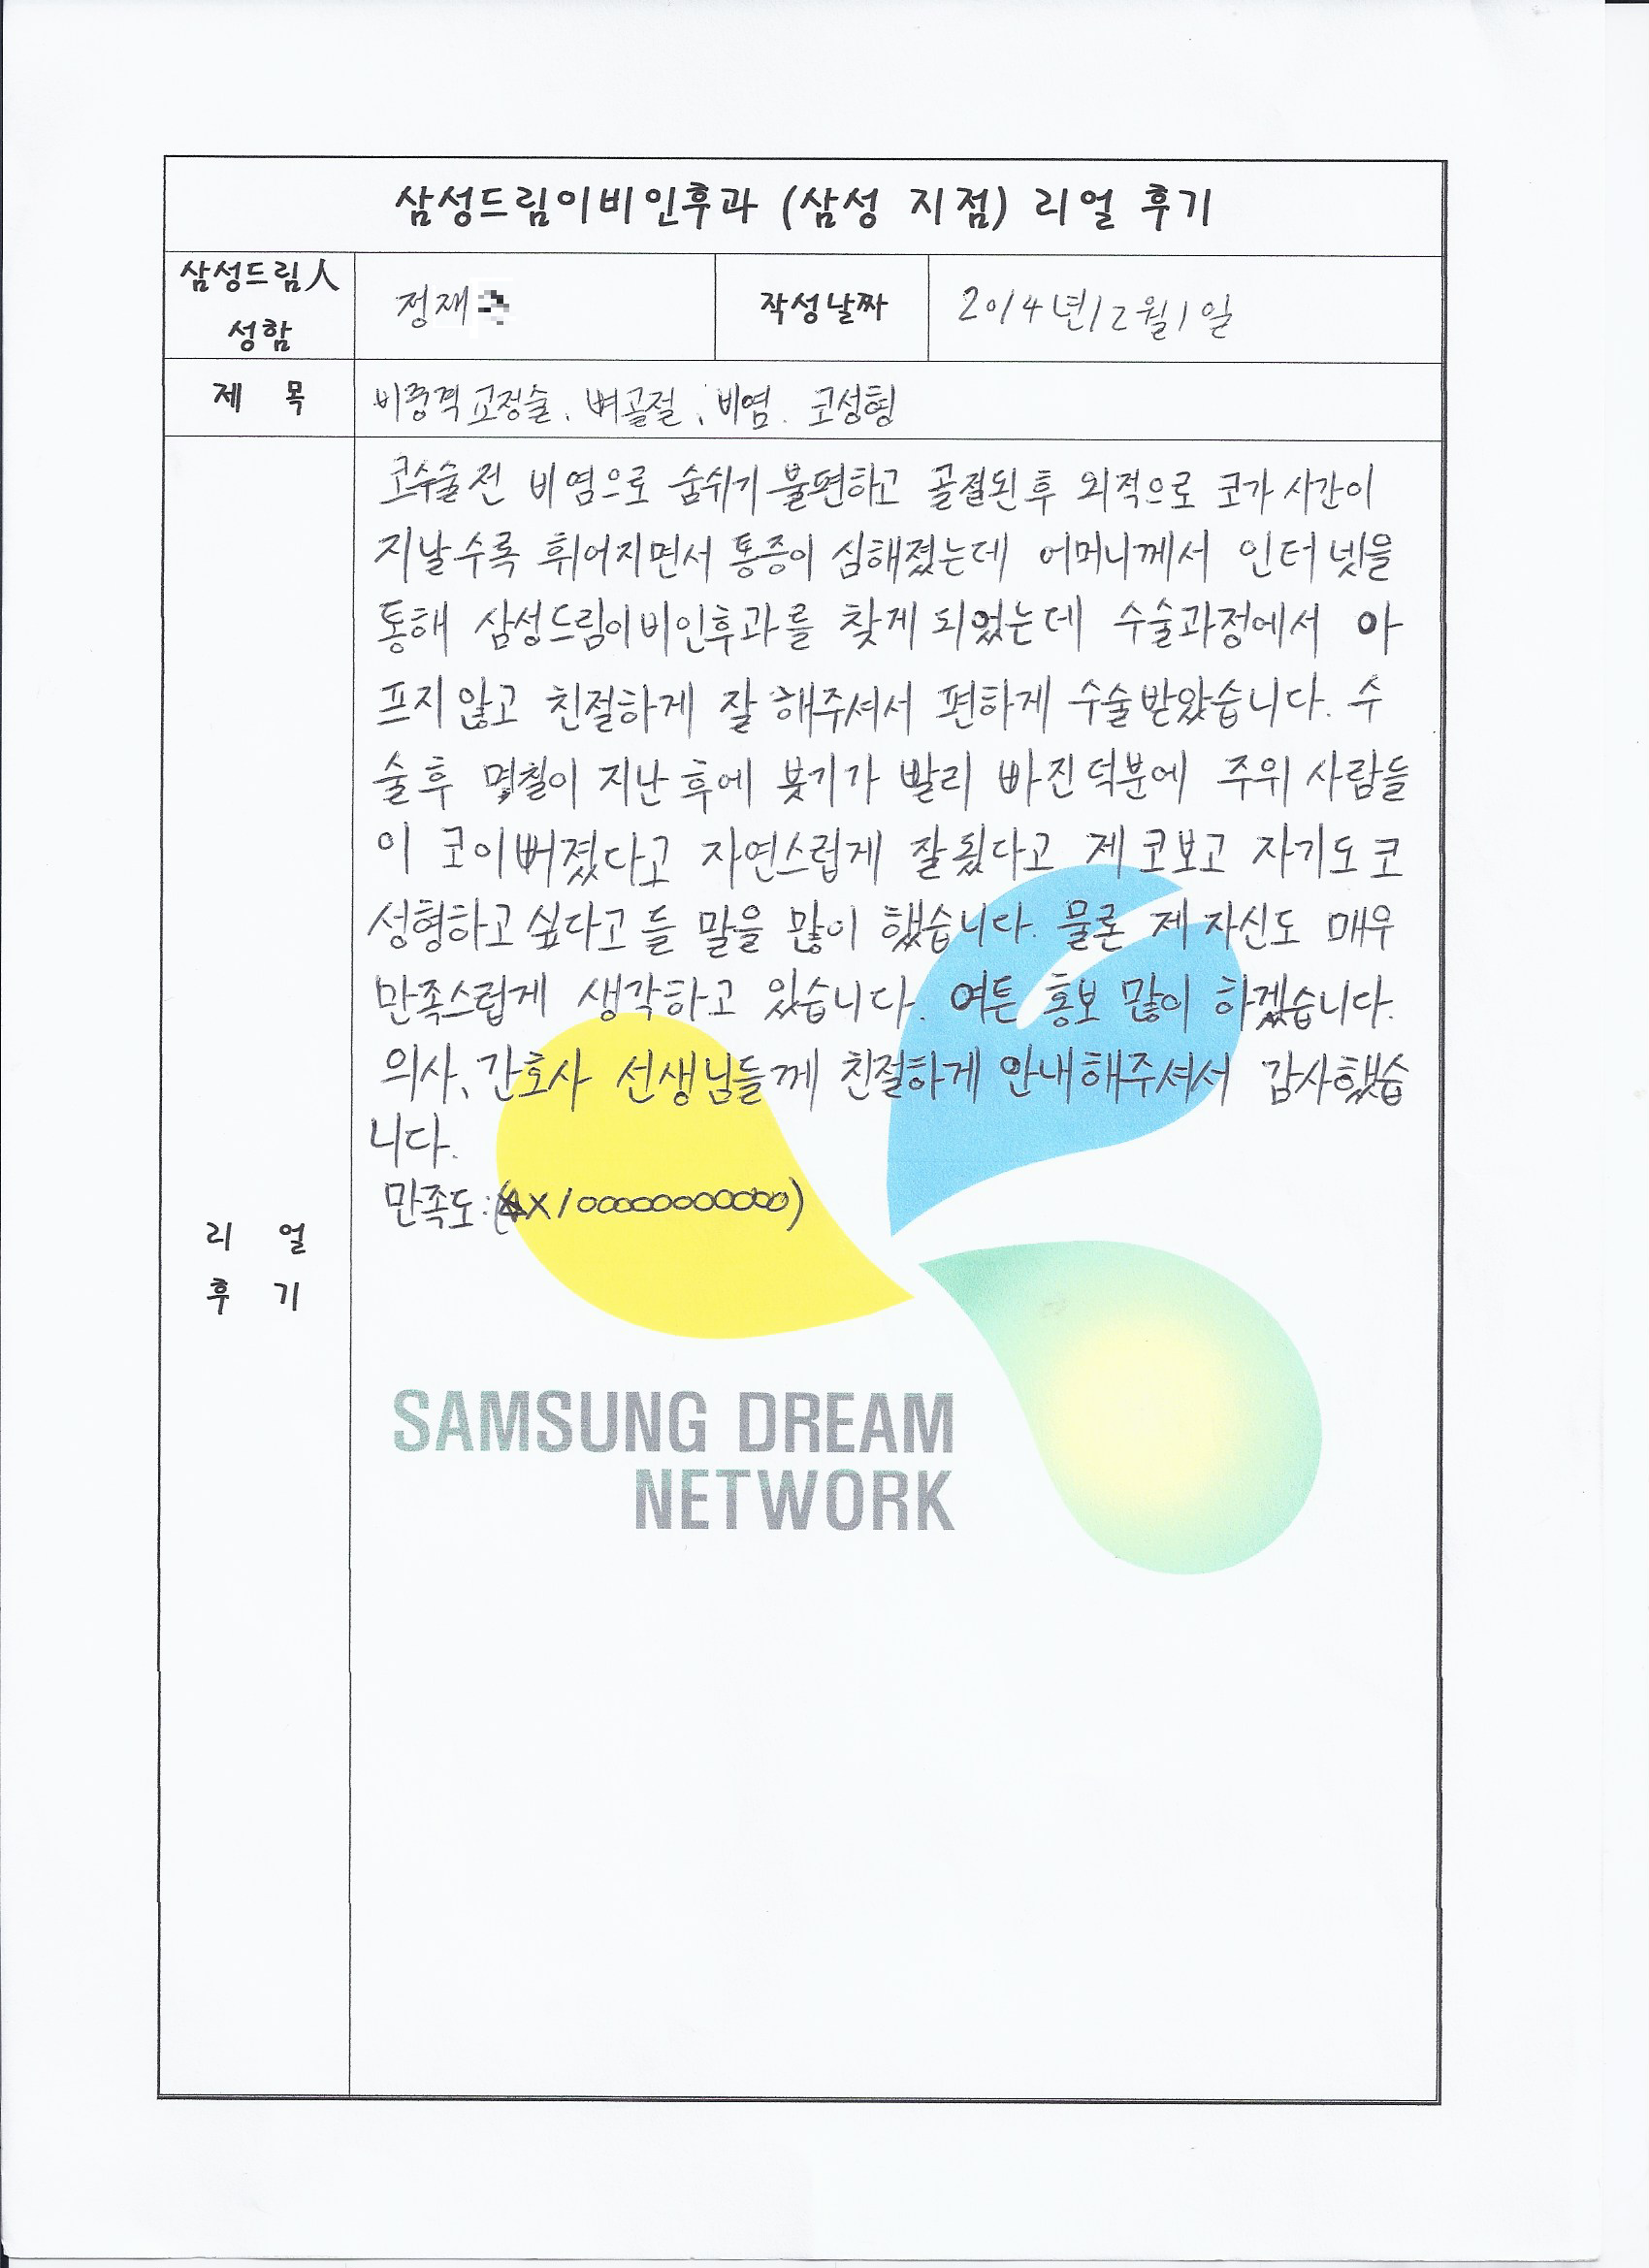 삼성드림이비인후과 (삼성 지점) 리얼 후기
삼성드림人
성함
정재
작성날짜
2014년12월1일
제 목
비중격교정술. 뼈골절. 비염. 코성형
코수술전 비염으로 숨쉬기 불편하고 골절된후 외적으로 코가 시간이
지날수록 휘어지면서 통증이 심해졌는데 어머니께서 인터넷을
통해 삼성드림이비인후과를 찾게 되었는데 수술과정에서 아
프지않고 친절하게 잘 해주셔서 편하게 수술받았습니다. 수
술후 몇칠이 지난후에 붓기가 빨리 빠진덕분에 주위 사람들
이 코이뻐졌다고 자연스럽게 잘됬다고 제 코보고 자기도 코
성형하고싶다고 들 말을 많이 했습니다. 물론 제 자신도 매우
만족스럽게 생각하고 있습니다. 여튼 홍보 많이 하겠습니다.
의사, 간호사 선생님들께 친절하게 안내해주셔서 감사했습
니다.
만족도:
리 얼
후 기
SAMSUNG DREAM
NETWORK